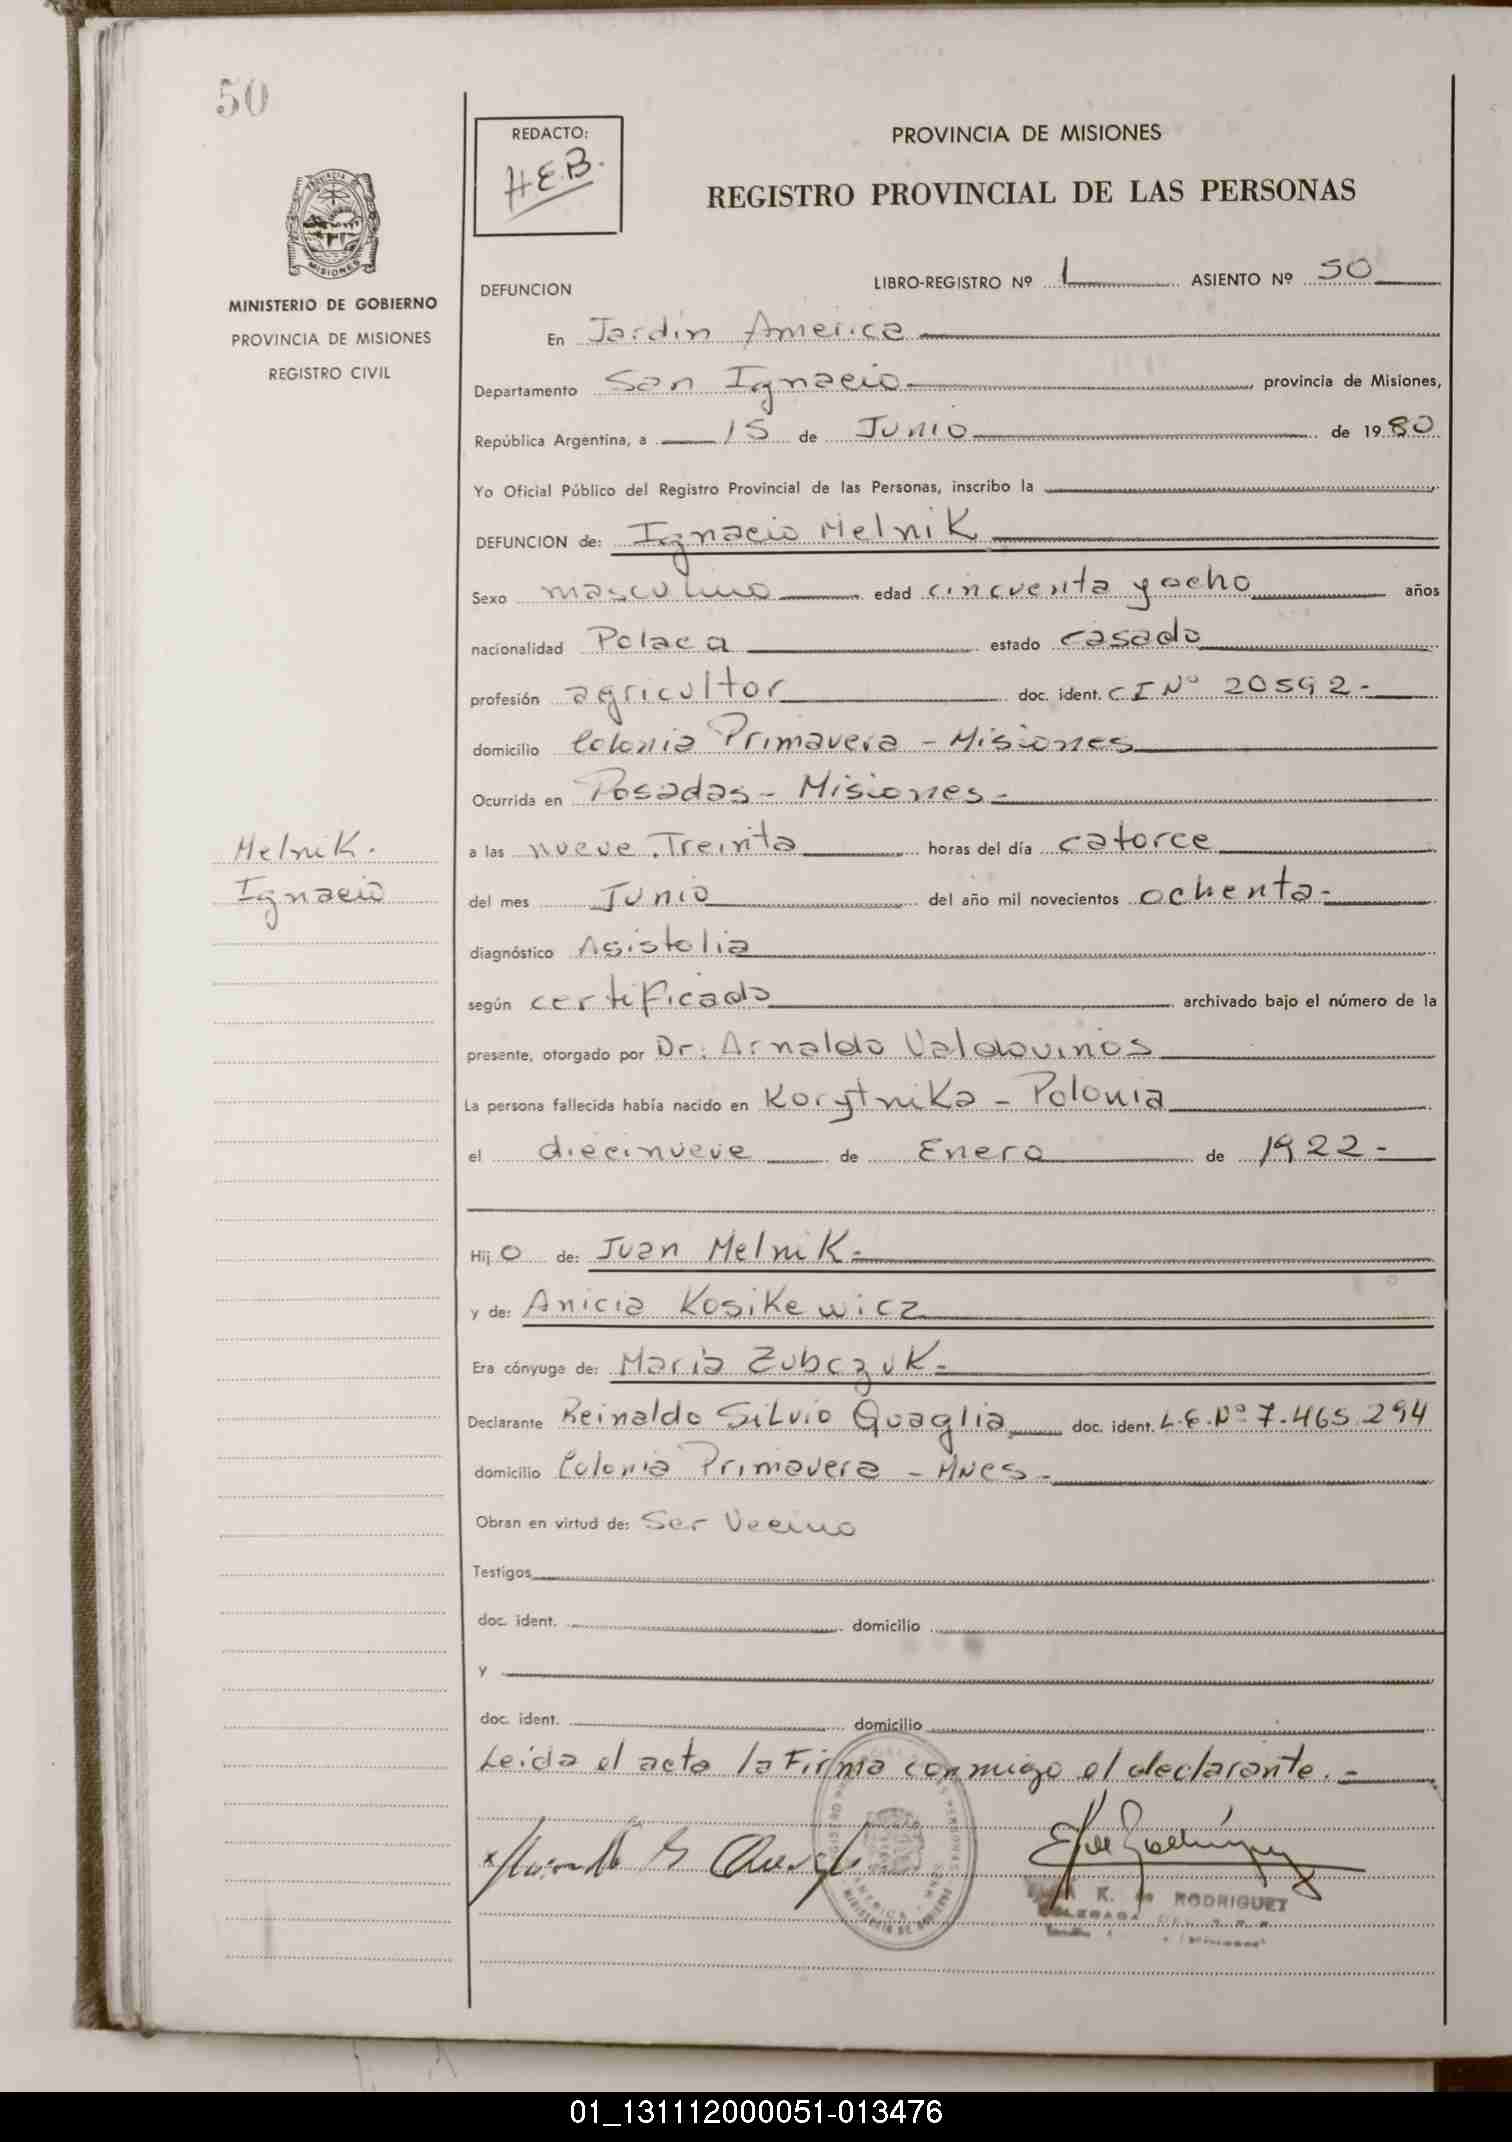 50
REDACTO:
H.E.B.
PROVINCIA DE MISIONES
REGISTRO PROVINCIAL DE LAS PERSONAS
MISIONES
MINISTERIO DE GOBIERNO
PROVINCIA DE MISIONES
REGISTRO CIVIL
DEFUNCION
LIBRO-REGISTRO Nº 1 ASIENTO Nº 50
En Jardin America
Departamento San Ignacio provincia de Misiones,
República Argentina, a 15 de Junio de 1980
Yo Oficial Público del Registro Provincial de las Personas, inscribo la
DEFUNCION de: Ignacio Melnik
Sexo masculino edad cincuenta y ocho años
nacionalidad Polaca estado casado
profesión agricultor doc. ident. C I Nº 20592-
domicilio Colonia Primavera - Misiones
Ocurrida en Posadas - Misiones -
Melnik.
Ignacio
a las nueve Treinta horas del día catorce
del mes Junio del año mil novecientos ochenta-
diagnóstico Asistolia
según certificado archivado bajo el número de la
presente, otorgado por Dr: Arnaldo Valdovinos
La persona fallecida había nacido en Korytnika - Polonia
el diecinueve de Enero de 1922-
Hij o de: Juan Melnik-
y de: Anicia Kosikewicz
Era cónyuge de: Maria Zubczuk-
Declarante Reinaldo Silvio Quaglia doc. ident. L.E.Nº 7.465.294
domicilio Colonia Primavera - Mnes-
Obran en virtud de: Ser Vecino
Testigos
doc. ident. domicilio
y
doc. ident. domicilio
Leida el acta la Firma conmigo el declarante.-
K. de RODRIGUEZ
01_131112000051-013476